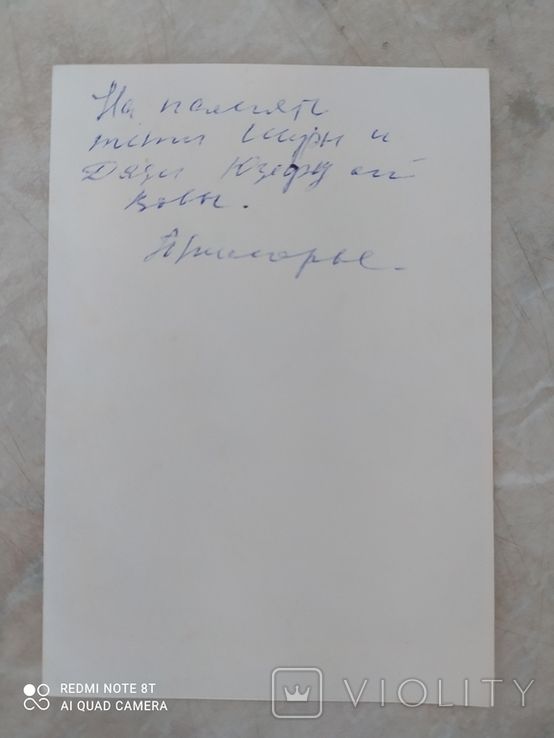 На память
тёти Шуры и
Дяди Юзефу от
Вовы.
Приморье.
REDMI NOTE 8T
AI QUAD CAMERA
VIOLITY